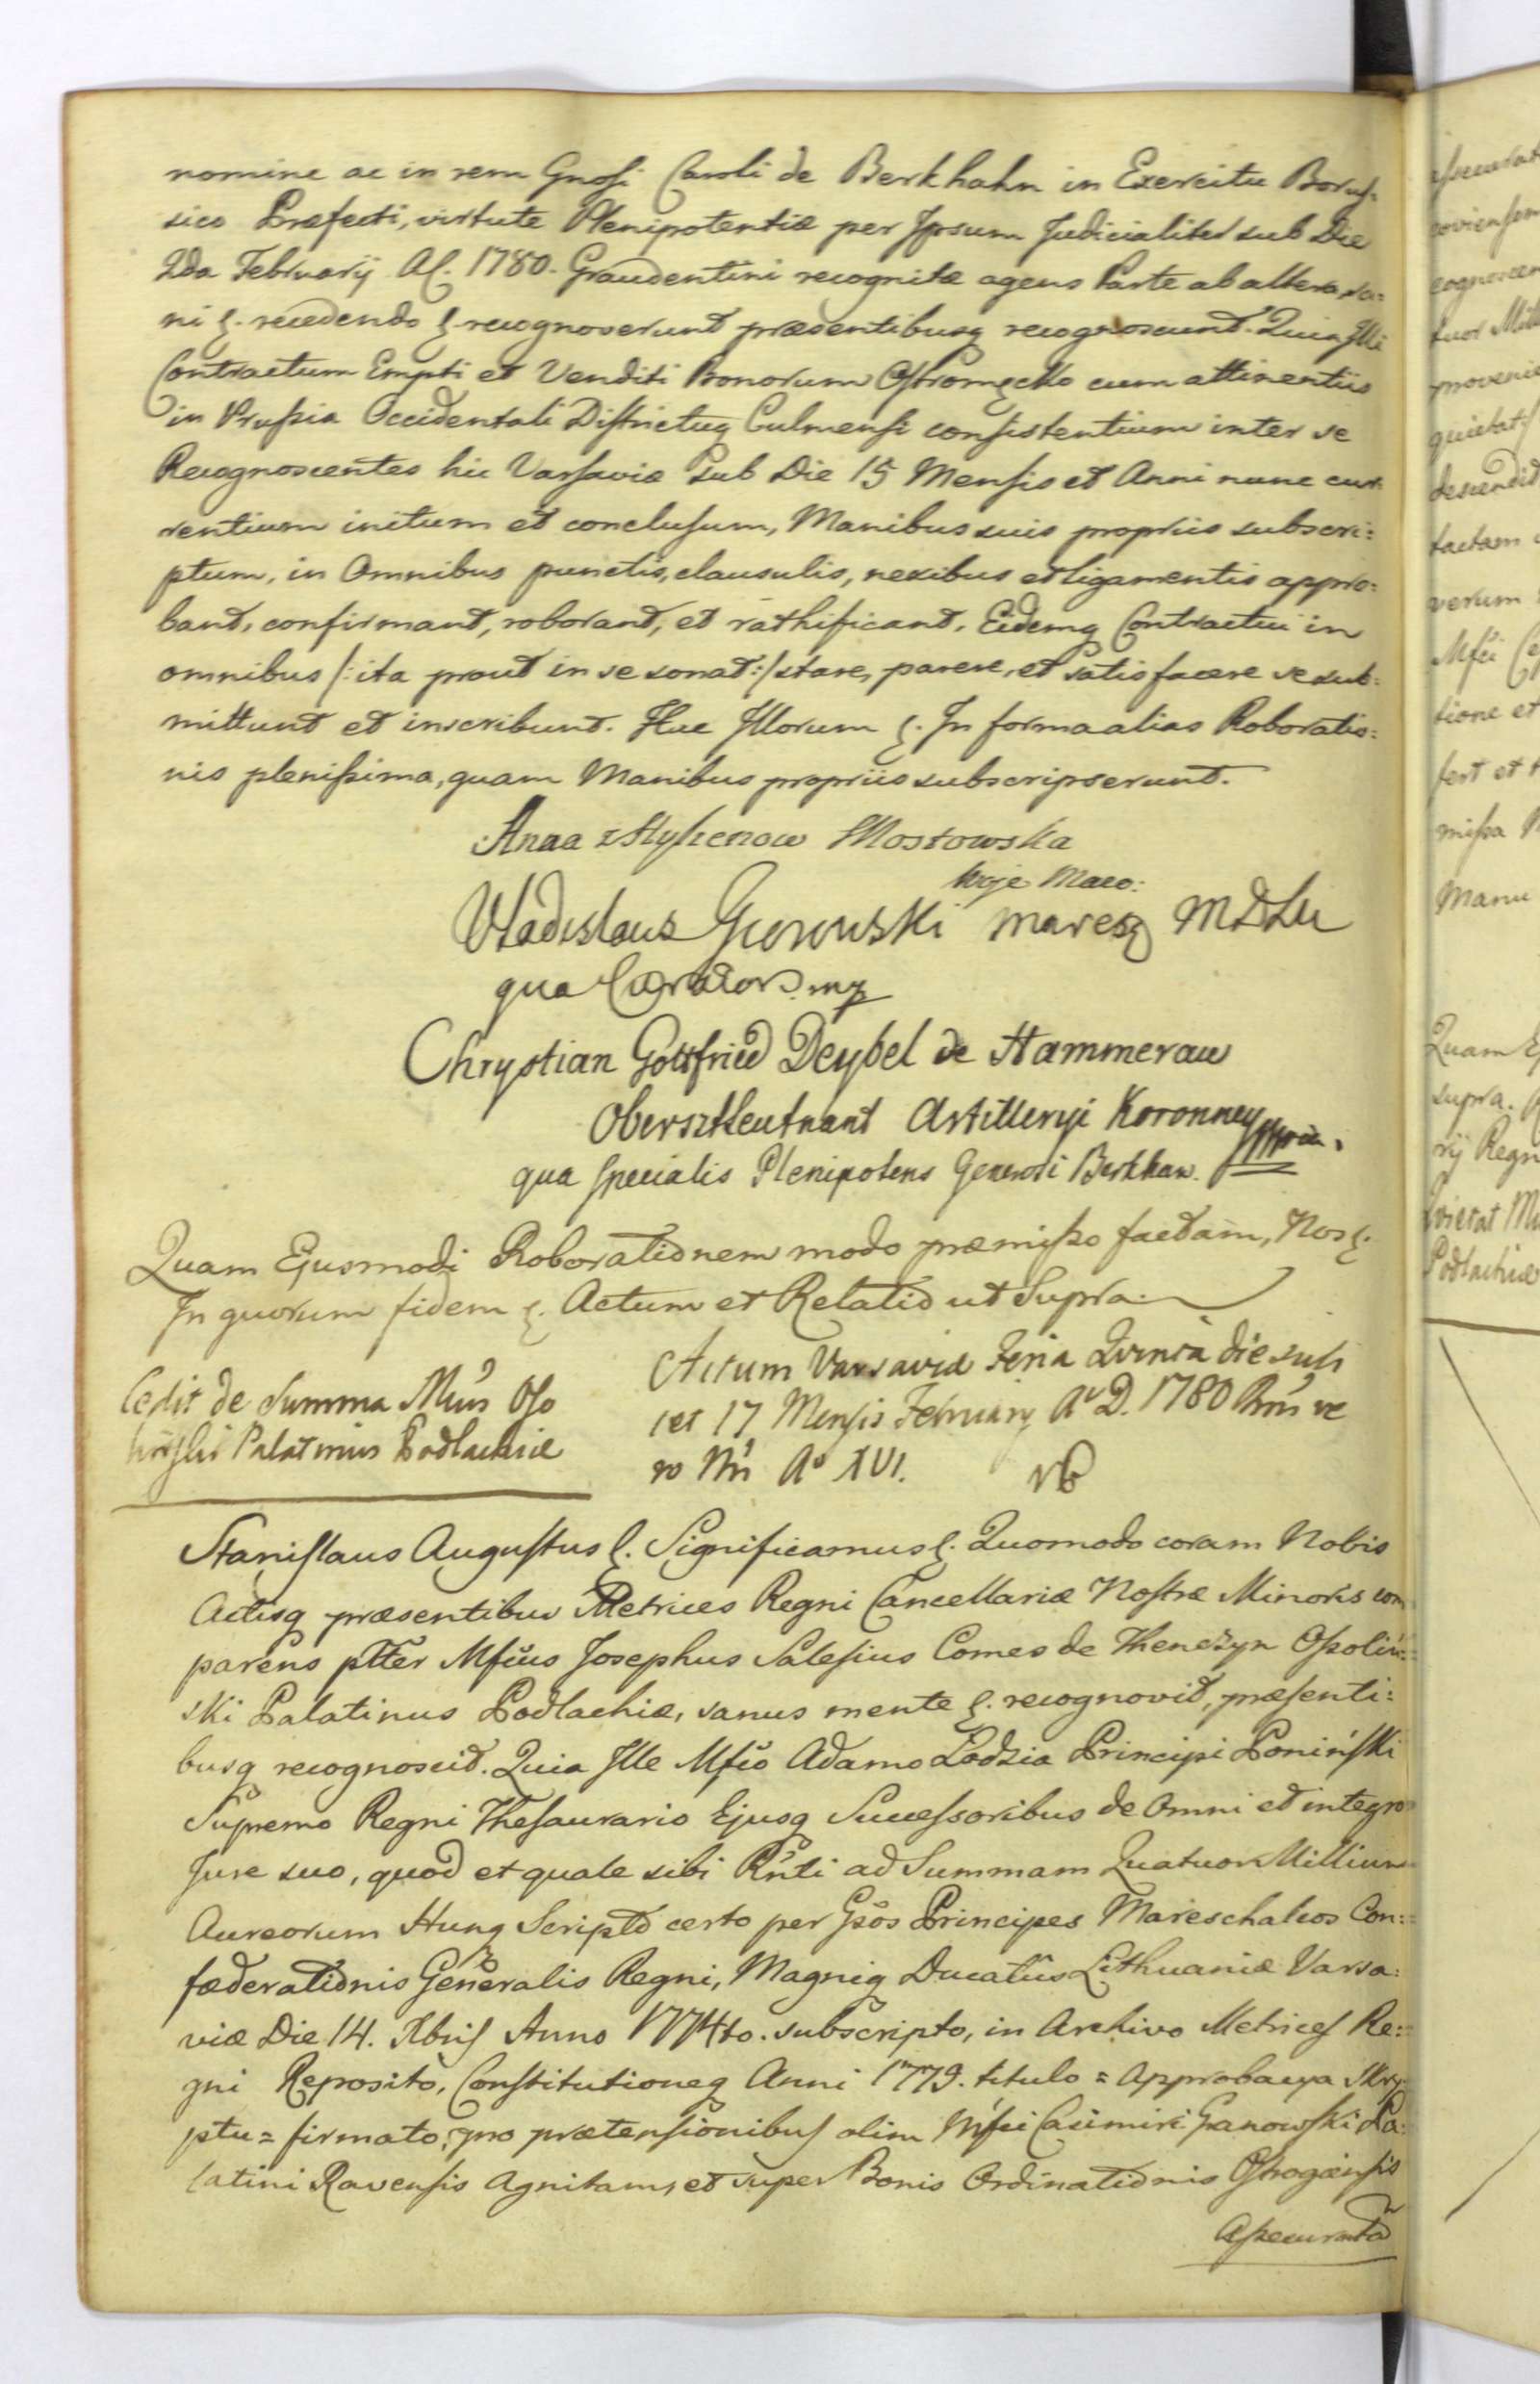 nomine ac in rem Gnosi Caroli de Berkhahn in Exercitu Borus-
sico Præfecti, virtute Plenipotentiæ per Ipsum Judicialiter sub Die
2da Februarij A. 1780. Graudentini recognitæ agens Parte ab altera, sa:
ni &. recedendo &. recognoverunt præsentibusq recognoscunt. Quia Illi
Contractum Empti et Venditi Bonorum Ostromęcko cum attinentiis
in Prussia Occidentali Districtuq Culmensi consistentium inter se
Recognoscentes hic Varsaviæ sub Die 15 Mensis et Anni nunc cur-
rentium initum et conclusum, Manibus suis propriis subscri:
ptum, in Omnibus punctis, clausulis, nexibus et ligamentis appro:
bant, confirmant, roborant, et rathificant. Eidemq Contractui in
omnibus /: ita prout in se sonat :/ stare, parere, et satisfacere se sub:
mittunt et inscribunt. Huc Illorum &. In forma alias Roboratio:
nis plenissima, quam Manibus propriis subscripserunt.
Anna z Mostowska
Woje Mazo:
Vladislaus Gurowski maresz M D Lit
qua Curator mp
Chrystian Gottfried Deybel de Hammerau
Obersztleutnant Artilleryi Koronney
qua specialis Plenipotens Generosi Berkhan.
Quam Ejusmodi Roborationem modo præmisso factam, Nos &.
In quorum fidem &. Actum et Relatio ut Supra.
Cedit de Summa Mcus Oso
liński Palatinus Podlachiæ
Actum Varsaviæ Feria Quinta die scili
cet 17 Mensis Februarij A° D. 1780 Rni ve
ro Nri A° XVI.
Stanislaus Augustus &. Significamus &. Quomodo coram Nobis
Actisq præsentibus Metrices Regni Cancellariæ Nostræ Minoris com
parens pltter Mficus Josephus Salesius Comes de Thenczyn Ossoliń:
ski Palatinus Podlachiæ, sanus mente &. recognovit, præsenti:
busq recognoscit. Quia Ille Mfico Adamo Łodzia Principi Poniński
Supremo Regni Thesaurario Ejusq Successoribus de Omni et integro
Jure suo, quod et quale sibi Rnti ad Summam Quatuor Millium
Aureorum Hung Scripto certo per Gsos Principes Mareschalcos Con:
fæderationis Generalis Regni, Magniq Ducatus Lithuaniæ Varsa:
viæ Die 14. Xbris Anno 1774to. subscripto, in Archivo Metrices Re:
gni Reposito, Constitutioneq Anni 1779. titulo = Approbacya Skry
ptu = firmato, pro prætensionibus olim Mfici Casimiri Granowski Pa:
latini Ravensis Agnitam, et super Bonis Ordinationis Ostrogiensis
Assecuratã